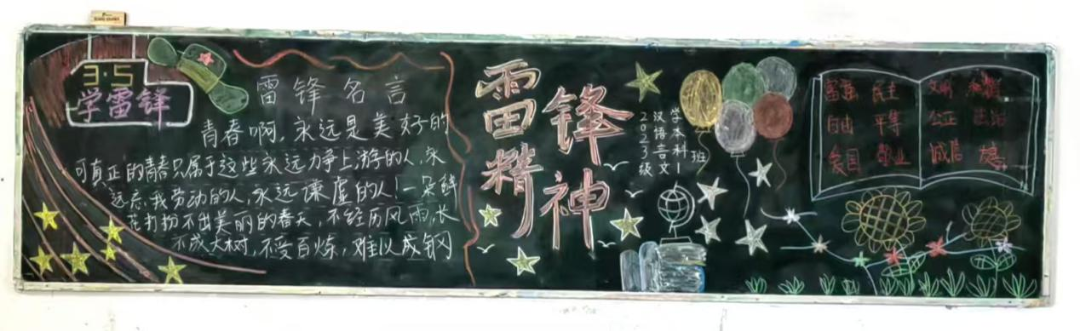 3·5
学雷锋
雷锋名言
青春啊,永远是美好的
可真正的青春只属于这些永远力争上游的人,永
远忘我劳动的人,永远谦虚的人!一朵鲜
花打扮不出美丽的春天,不经历风雨,长
不成大树,不受百炼,难以成钢
雷锋
精神
2023级
汉语言文
学本科1
班
富强 民主
自由 平等
爱国 敬业
文明 和谐
公正 法治
诚信 友善